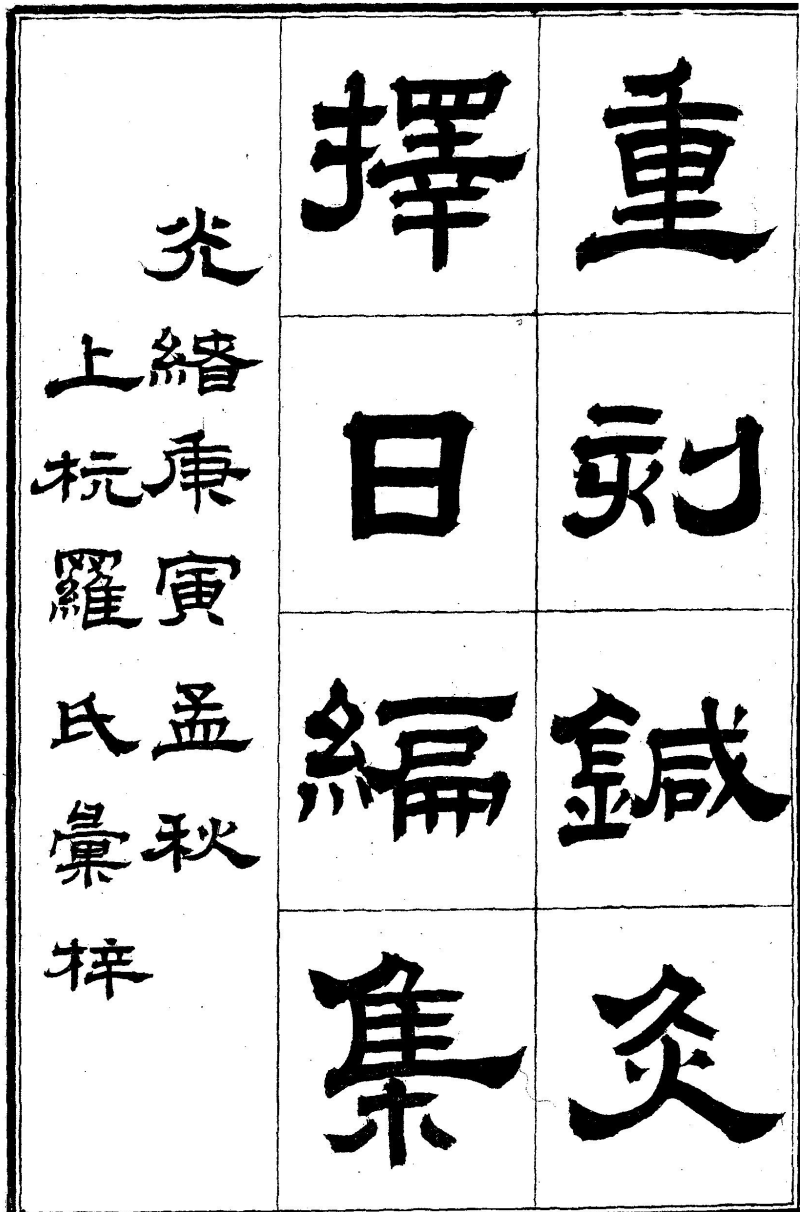 重刻鍼灸
擇日編集
光緒庚寅孟秋
上杭羅氏彙梓